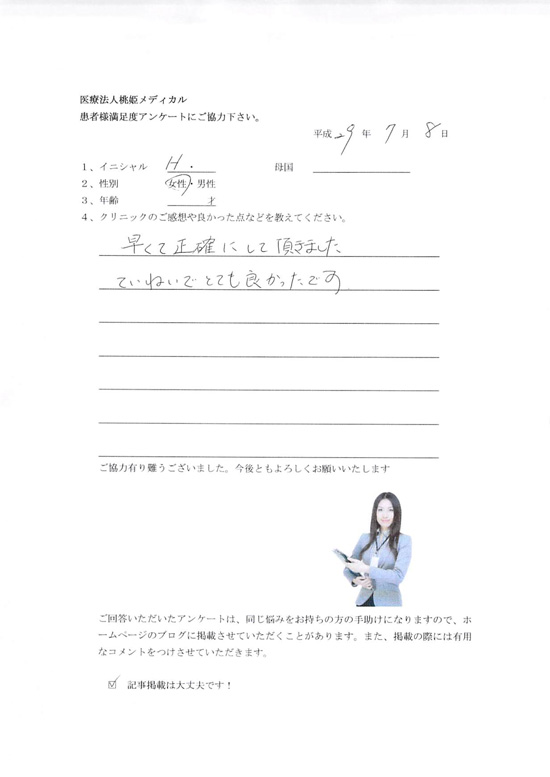 医療法人桃姫メディカル
患者様満足度アンケートにご協力下さい。
平成 29 年 7 月 8 日
1、イニシャル H. 母国
2、性別 女性・男性
3、年齢 才
4、クリニックのご感想や良かった点などを教えてください。
早くて正確にして頂きました
ていねいでとても良かったです
ご協力有り難うございました。今後ともよろしくお願いいたします
ご回答いただいたアンケートは、同じ悩みをお持ちの方の手助けになりますので、ホ
ームページのブログに掲載させていただくことがあります。また、掲載の際には有用
なコメントをつけさせていただきます。
☑ 記事掲載は大丈夫です！